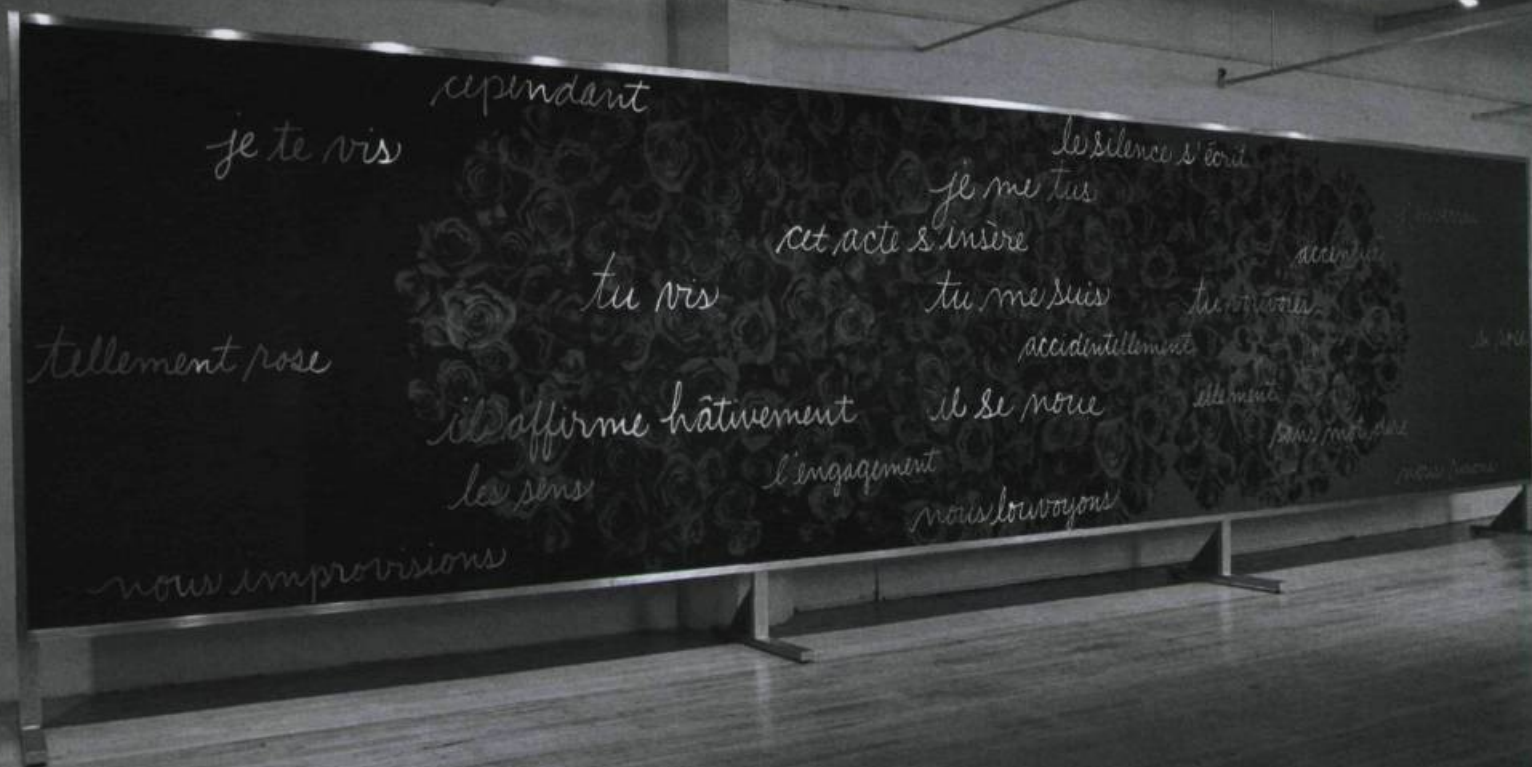 cependant
je te vis
le silence s'écrit
je me tus
cet acte s'insère
tu vis
tu me suis
tu vouvoies
accidentellement
tellement rose
il affirme hâtivement
il se noue
les sens
l'engagement
nous louvoyons
nous improvisions